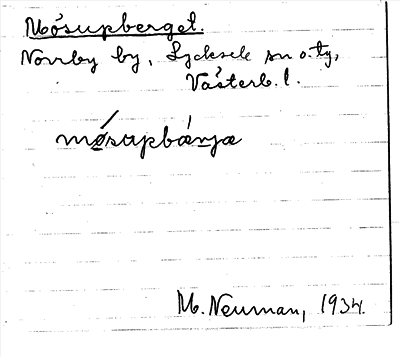 Mósupberget.
Norrby by, Lycksele sn o. ty,
Västerb. l.
mósupbærjæ
M. Neuman, 1934.